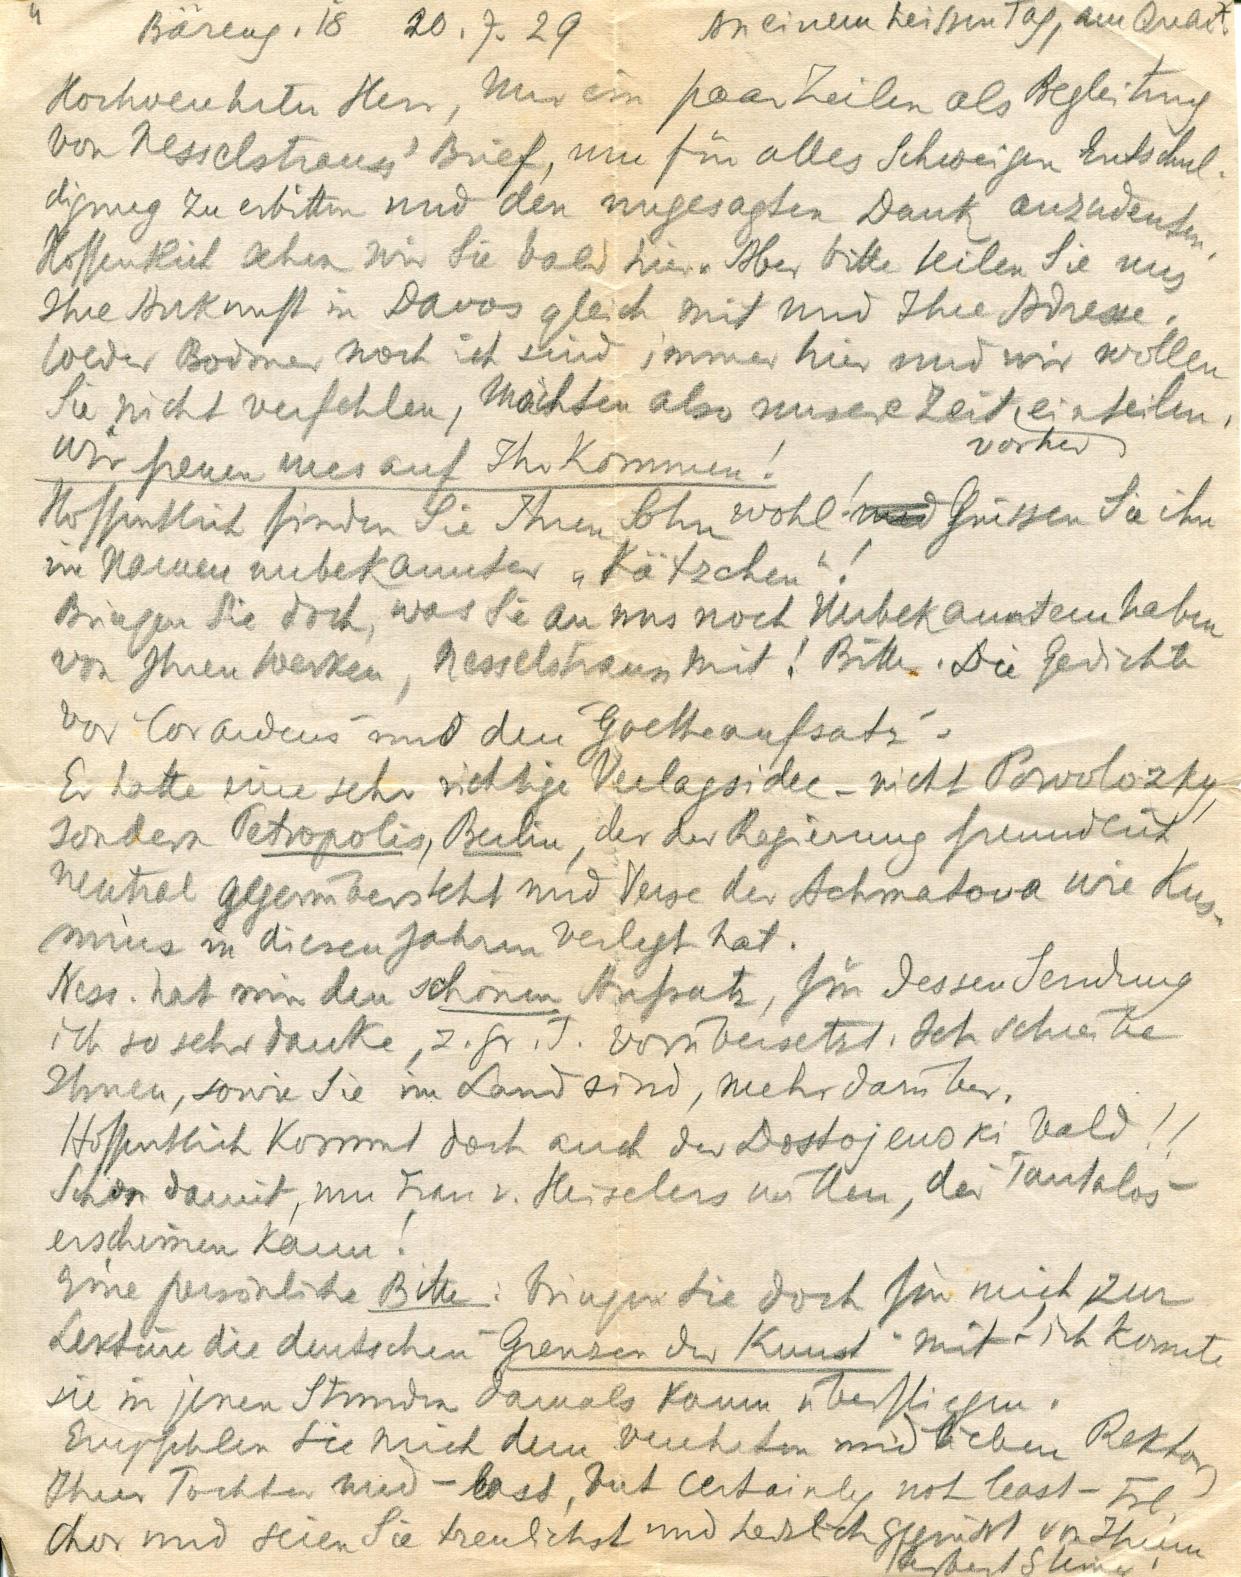 Bäreng. 18 20.7.29 An einem heissen Tag, am Quai.
Hochverehrter Herr, Nur ein paar Zeilen als Begleitung
von Nesselstrauss' Brief, um für alles Schweigen Entschul-
digung zu erbitten und den ungesagten Dank anzudeuten.
Hoffentlich sehen wir Sie bald hier. Aber bitte teilen Sie uns
Ihre Ankunft in Davos gleich mit und Ihre Adresse.
Weder Bodmer noch ich sind immer hier und wir wollen
Sie nicht verfehlen, möchten also unsere Zeit einteilen.
vorher
Wir freuen uns auf Ihr Kommen!
Hoffentlich finden Sie Ihren Sohn wohl! Grüssen Sie ihn
im Namen unbekannter „Kätzchen"!
Bringen Sie doch, was Sie an uns noch Unbekanntem haben
von Ihren Werken, Nesselstrauss mit! Bitte. Die Gedichte
vor Corardens und den "Goetheaufsatz".
Er hatte eine sehr richtige Verlagsidee – nicht Powolozky,
sondern Petropolis, Berlin, der der Regierung freundlich
neutral gegenübersteht und Verse der Achmatova wie Kus-
mins in diesen Jahren verlegt hat.
Ness. hat mir den schönen Aufsatz, für dessen Sendung
ich so sehr danke, z. gr. T. vorübersetzt. Ich schreibe
Ihnen, sowie Sie im Land sind, mehr darüber.
Hoffentlich kommt doch auch der Dostojewski bald!!
Schon damit, um Frau v. Heiselers willen, der Tantalos
erscheinen kann!
Eine persönliche Bitte: bringen Sie doch für mich zur
Lektüre die deutschen "Grenzen der Kunst" mit – ich konnte
sie in jenen Stunden damals kaum überfliegen.
Empfehlen Sie mich dem verehrten und lieben Rektor,
Ihrer Tochter und – last, but certainly not least – Frl.
Chor und seien Sie treulichst und herzlich gegrüsst von Ihrem
Herbert Steiner.